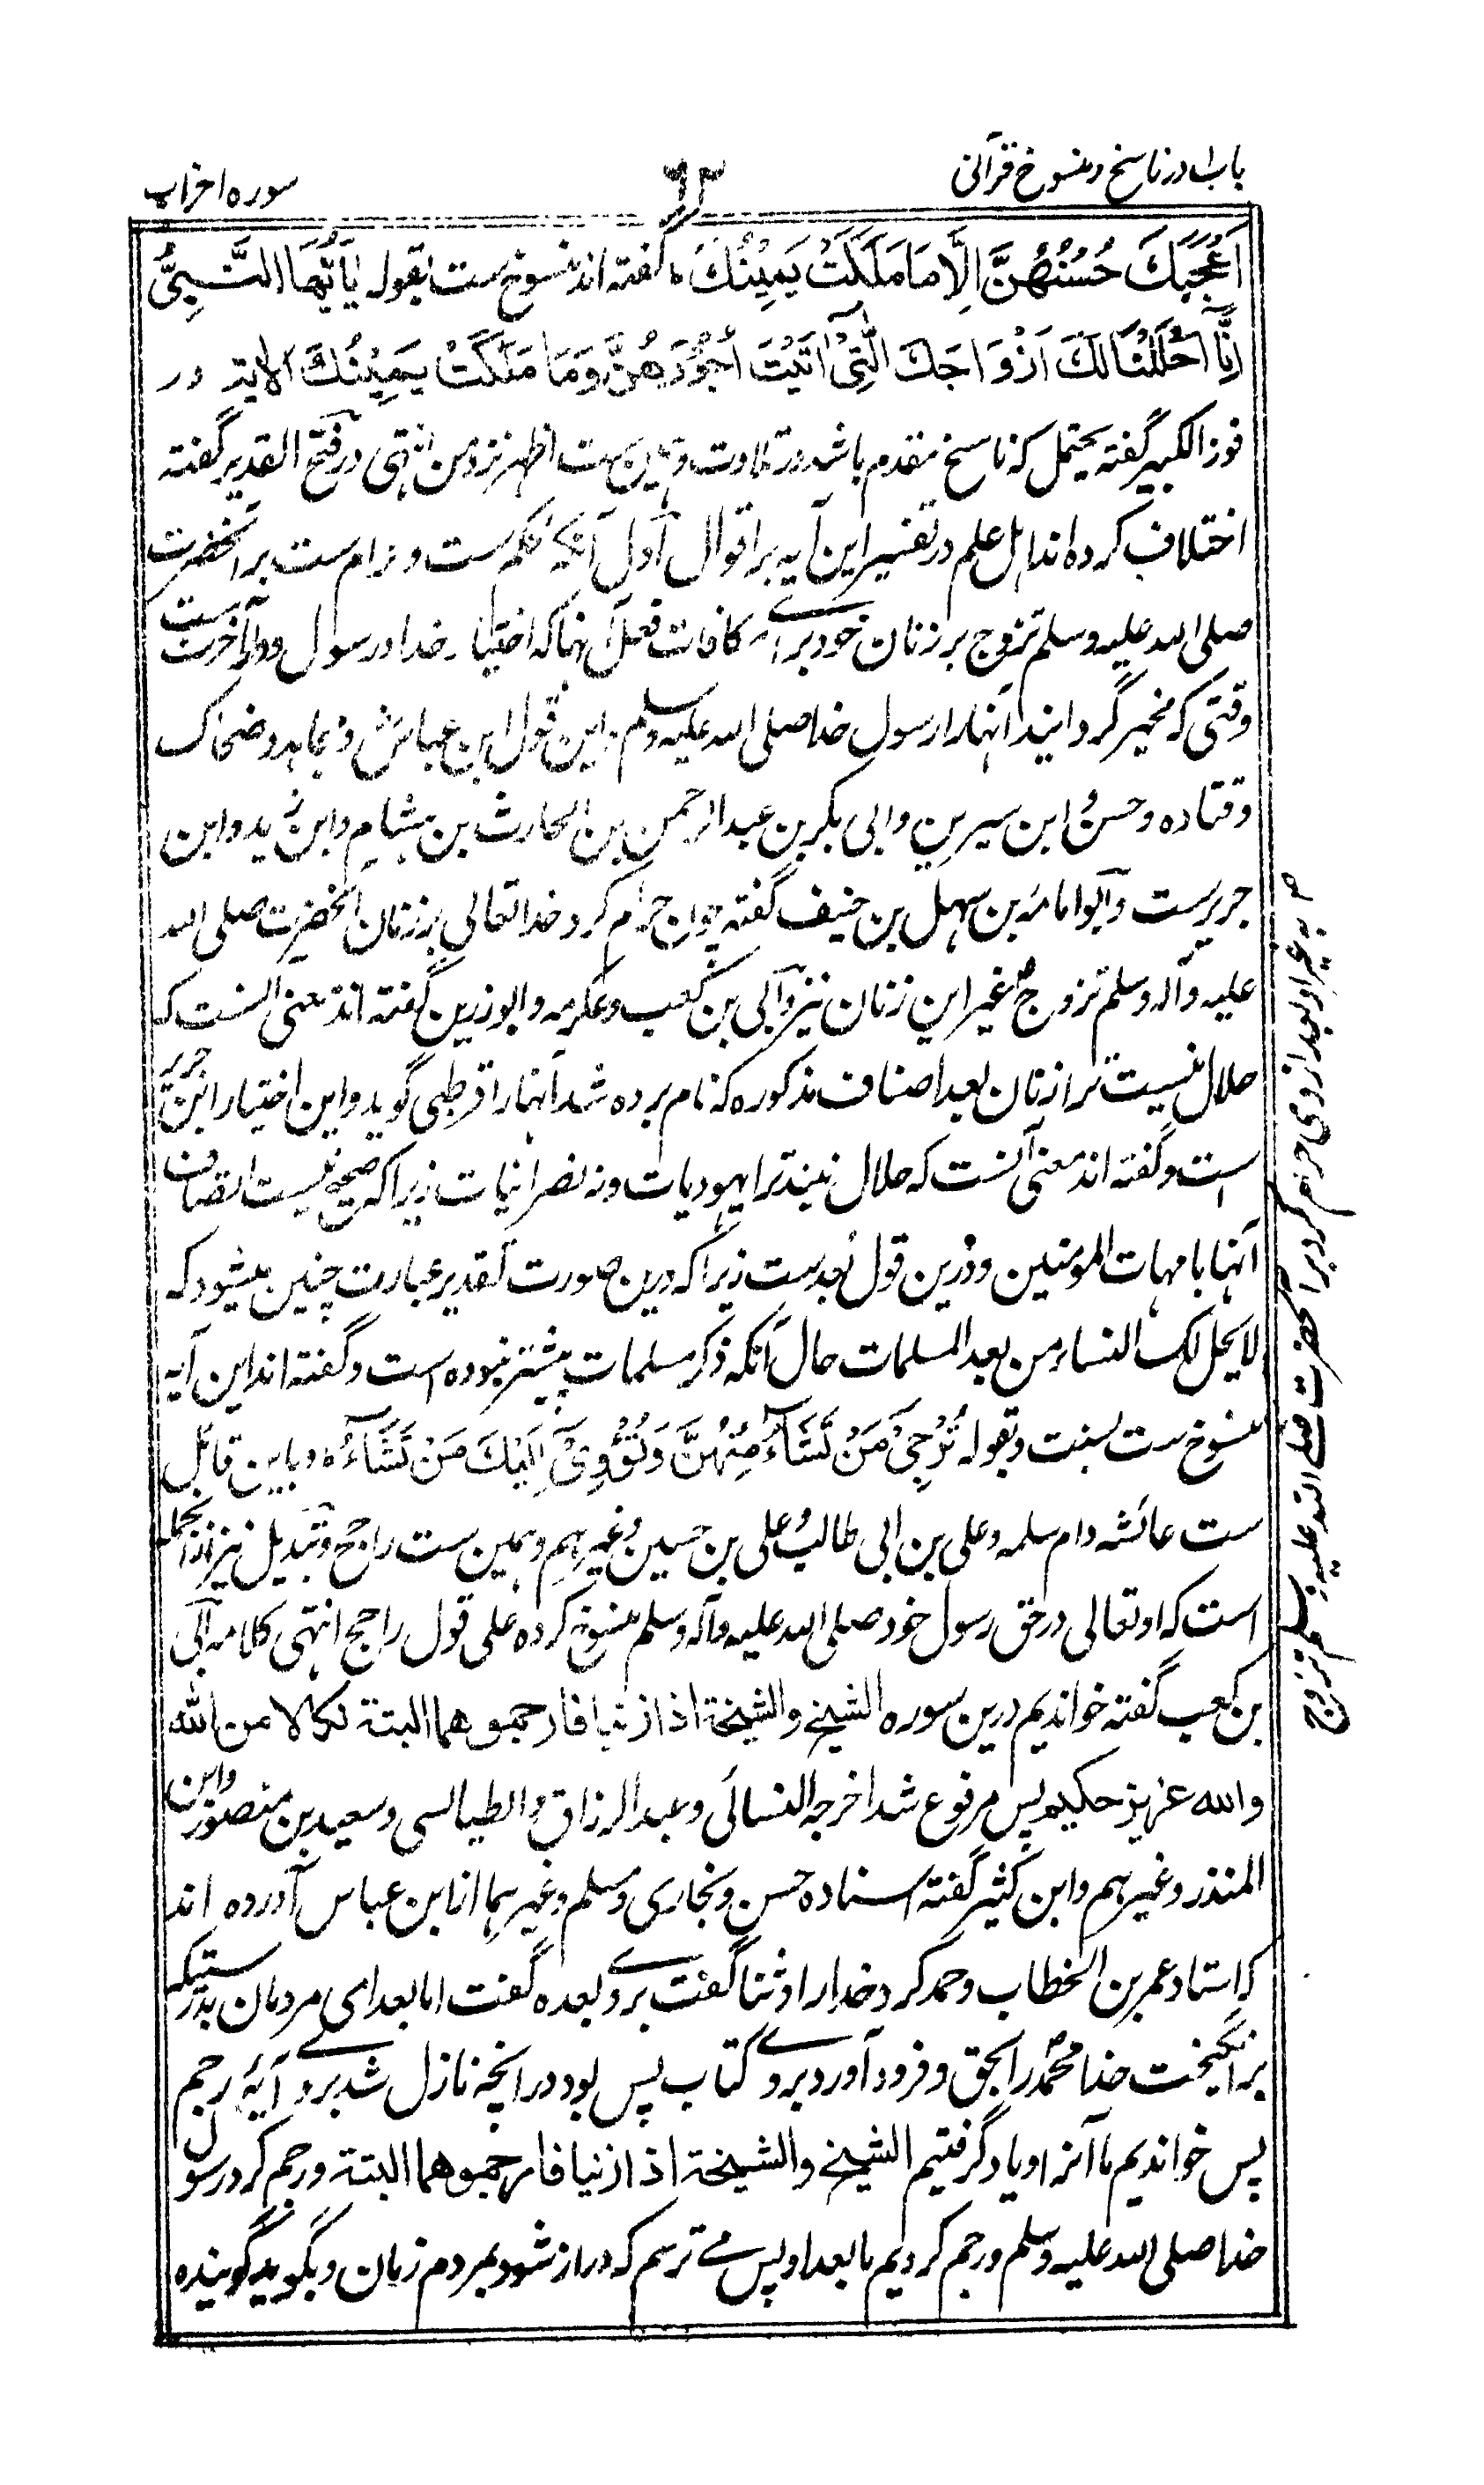 باب ا در ناسخ و منسوخ قرآنی
٦٣
سوره احزاب
اَعْجَبَكَ حُسْنُهُنَّ اِلَّا مَا مَلَكَتْ يَمِيْنُكَ ه گفته اند منسوخ ست بقوله يٰاَيُّهَا النَّبِىُّ
اِنَّآ اَحْلَلْنَا لَكَ اَزْوَاجَكَ الّٰتِىْٓ اٰتَيْتَ اُجُوْرَهُنَّ وَمَا مَلَكَتْ يَمِيْنُكَ الاية در
فوز الکبیر گفته یحتمل که ناسخ مقدم باشد در تلاوت و همین ست اظهر نزد من انتهی در فتح القدیر گفته
اختلاف کرده اند اهل علم در تفسیر این آیه بر اقوال اول آنکه محکم ست و حرام ست بر آنحضرت
صلی الله علیه وسلم تزوج بر زنان خود برای مکافات فعل آنها که اختیار خدا و رسول و دار آخرت ست
وقتی که مخیر گردانید آنها را رسول خدا صلی الله علیه وسلم و این قول ابن عباس و مجاهد و ضحاک
و قتاده و حسن و ابن سیرین و ابی بکر بن عبد الرحمن بن الحارث بن هشام و ابن زید و ابن
جریرست و ابو امامه بن سهل بن حنیف گفته چون حرام کرد خدا تعالی بر زنان آنحضرت صلی الله
علیه وآله وسلم تزوج غیر این زنان نیز و ابی بن کعب و عکرمه و ابو رزین گفته اند معنی آنست که
حلال نیست ترا زنان بعد اصناف مذکوره که نام برده شد آنها را قرطبی گوید و این اختیار ابن جریر
است و گفته اند معنی آنست که حلال نیند ترا یهودیات و نه نصرانیات زیرا که صحیح نیست اتصاف
آنها بامهات المومنین و درین قول بعدست زیرا که درین صورت تقدیر عبارت چنین میشود که
لا یحل لک النساء من بعد المسلمات حال آنکه ذکر مسلمات پیشتر نبوده است و گفته اند این آیه
منسوخ ست بسنت و بقوله تُرْجِىْ مَنْ تَشَآءُ مِنْهُنَّ وَتُؤْوِىْٓ اِلَيْكَ مَنْ تَشَآءُ ه و باین قائل
ست عائشه و ام سلمه و علی بن ابی طالب و علی بن حسین و غیرهم و همین ست راجح و تبدیل نیز از انجمله
است که او تعالی در حق رسول خود صلی الله علیه وآله وسلم منسوخ کرده علی قول راجح انتهی کلامه ابی
بن کعب گفته خواندیم درین سوره الشيخ والشيخة اذا زنيا فارجموهما البتة نكالا من الله
والله عزيز حكيم پس مرفوع شد اخرجه النسائی و عبد الرزاق و الطیالسی و سعید بن منصور و ابن
المنذر و غیرهم و ابن کثیر گفته اسناده حسن و بخاری و مسلم و غیرهما از ابن عباس آورده اند
که استاد عمر بن الخطاب و حمد کرد خدا را و ثنا گفت بروے بعده گفت اما بعد ای مردمان بدرستیکه
برانگیخت خدا محمد را بحق و فرود آورد بروے کتاب پس بود در انچه نازل شد بروے آیۀ رجم
پس خواندیم ما آنرا و یاد گرفتیم الشيخ والشيخة اذا زنيا فارجموهما البتة و رجم کرد رسول
خدا صلی الله علیه وسلم و رجم کردیم ما بعد او پس مے ترسم که دراز شود بمردم زمان و بگوید گوینده
به غیر او بعد ازوی حرام کرد بر آنحضرت صلی الله علیه وسلم تزوج